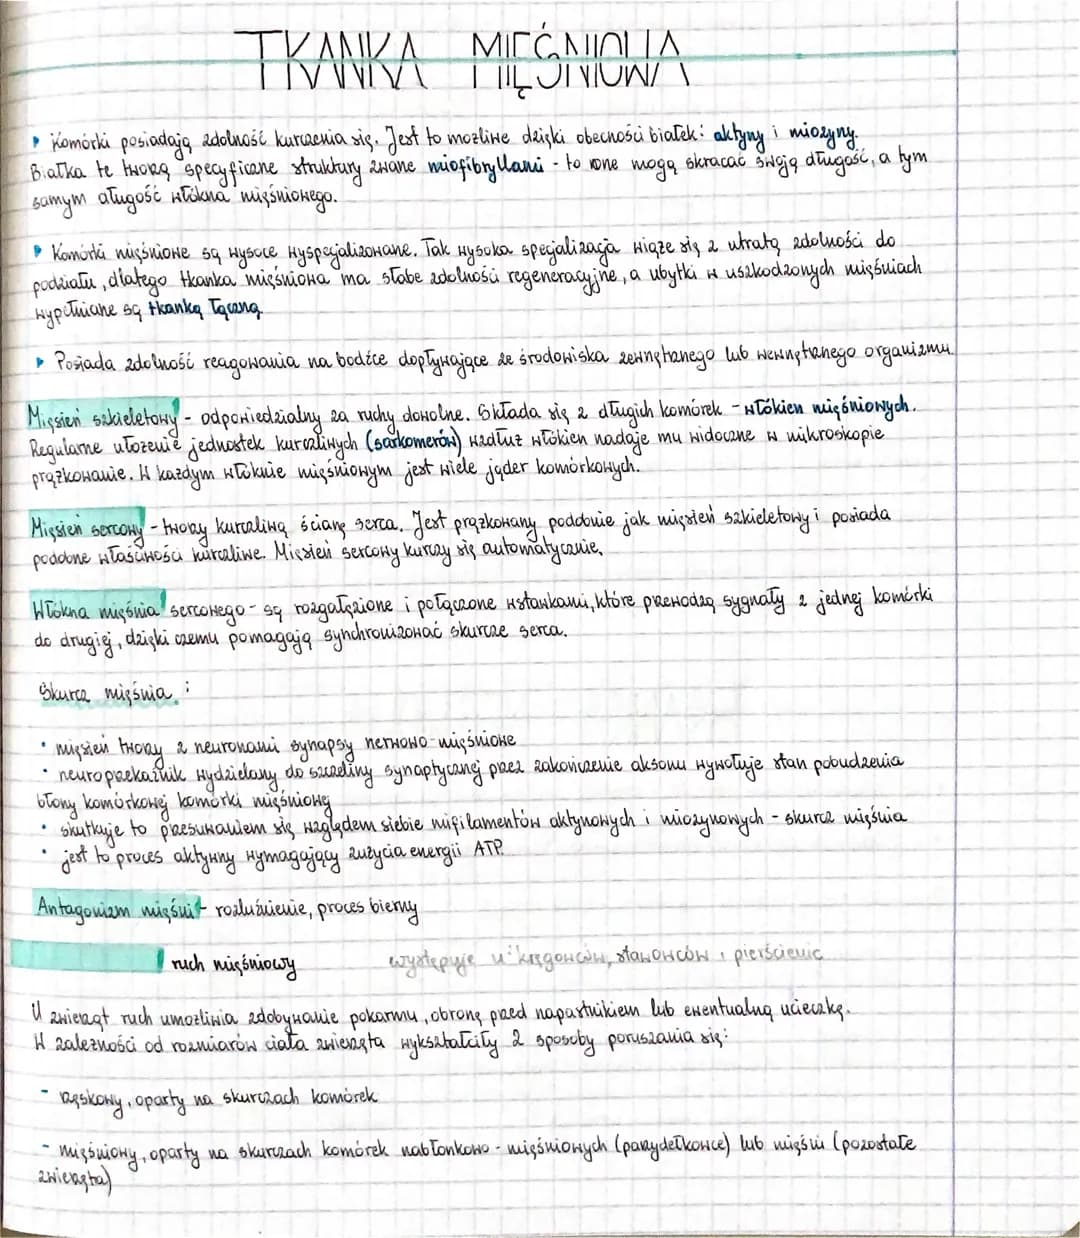 TKANKA MIĘŚNIOWA
Komórki posiadają zdolność kurczenia się. Jest to możliwe dzięki obecności białek: aktyny i miozyny.
Białka te tworzą specyficzne struktury zwane miofibryllami - to one mogą skracać swoją długość, a tym
samym długość włókna mięśniowego.
Komórki mięśniowe są wysoce wyspecjalizowane. Tak wysoka specjalizacja wiąże się z utratą zdolności do
podziału, dlatego tkanka mięśniowa ma słabe zdolności regeneracyjne, a ubytki w uszkodzonych mięśniach
wypełniane są tkanką łączną.
Posiada zdolność reagowania na bodźce dopływające ze środowiska zewnętrznego lub wewnętrznego organizmu.
Mięsień szkieletowy - odpowiedzialny za ruchy dowolne. Składa się z długich komórek - włókien mięśniowych.
Regularne ułożenie jednostek kurczliwych (sarkomerów) wzdłuż włókien nadaje mu widoczne w mikroskopie
prążkowanie. W każdym włóknie mięśniowym jest wiele jąder komórkowych.
Mięsień sercowy - tworzy kurczliwą ścianę serca. Jest prążkowany podobnie jak mięsień szkieletowy i posiada
podobne właściwości kurczliwe. Mięsień sercowy kurczy się automatycznie.
Włókna mięśnia sercowego - są rozgałęzione i połączone wstawkami, które przewodzą sygnały z jednej komórki
do drugiej, dzięki czemu pomagają synchronizować skurcze serca.
Skurcz mięśnia :
• mięsień tworzy z neuronami synapsy nerwowo-mięśniowe
• neuroprzekaźnik wydzielany do szczeliny synaptycznej przez zakończenie aksonu wywołuje stan pobudzenia
błony komórkowej komórki mięśniowej
• skutkuje to przesuwaniem się względem siebie mifilamentów aktynowych i miozynowych - skurcz mięśnia
• jest to proces aktywny wymagający zużycia energii ATP.
Antagonizm mięśni - rozluźnienie, proces bierny
ruch mięśniowy występuje u kręgowców, stawowców i pierścienic
U zwierząt ruch umożliwia zdobywanie pokarmu, obronę przed napastnikiem lub ewentualną ucieczkę.
W zależności od rozmiarów ciała zwierzęta wykształciły 2 sposoby poruszania się:
- rzęskowy, oparty na skurczach komórek
- mięśniowy, oparty na skurczach komórek nabłonkowo - mięśniowych (parzydełkowce) lub mięśni (pozostałe
zwierzęta)